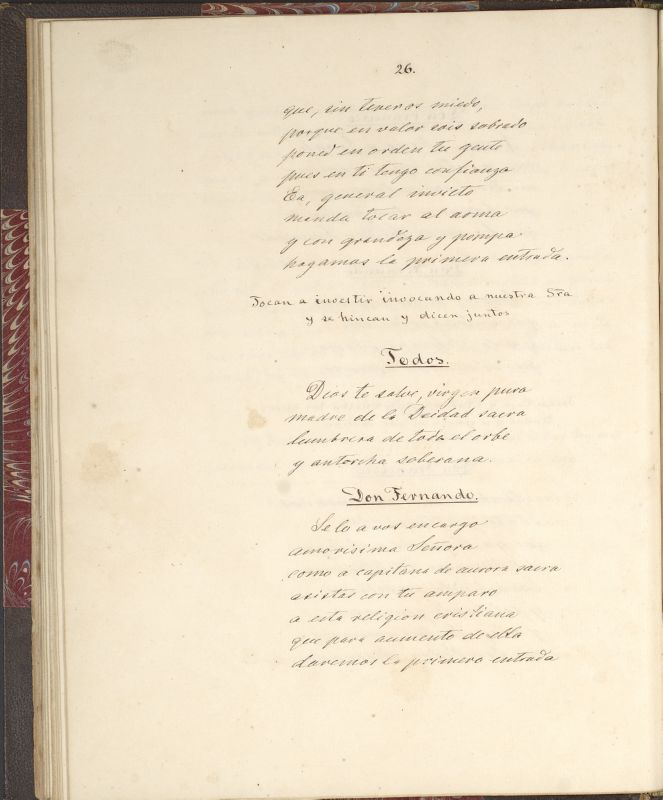 26.
que, sin teneros miedo,
porque en valor sois sobrado
poned en orden tu gente
pues en ti tengo confianza
Ea, general invicto
manda tocar al arma
y con grandeza y pompa
hagamos la primera entrada.
Tocan a investir invocando a nuestra Sra
y se hincan y dicen juntos
Todos.
Dios te salve, virgen pura
madre de la Deidad sacra
lumbrera de todo el orbe
y antorcha soberana.
Don Fernando.
Se lo a vos encargo
amorisima Señora
como a capitana de aurora sacra
asistas con tu amparo
a esta religion cristiana
que para aumento de ella
daremos la primera entrada